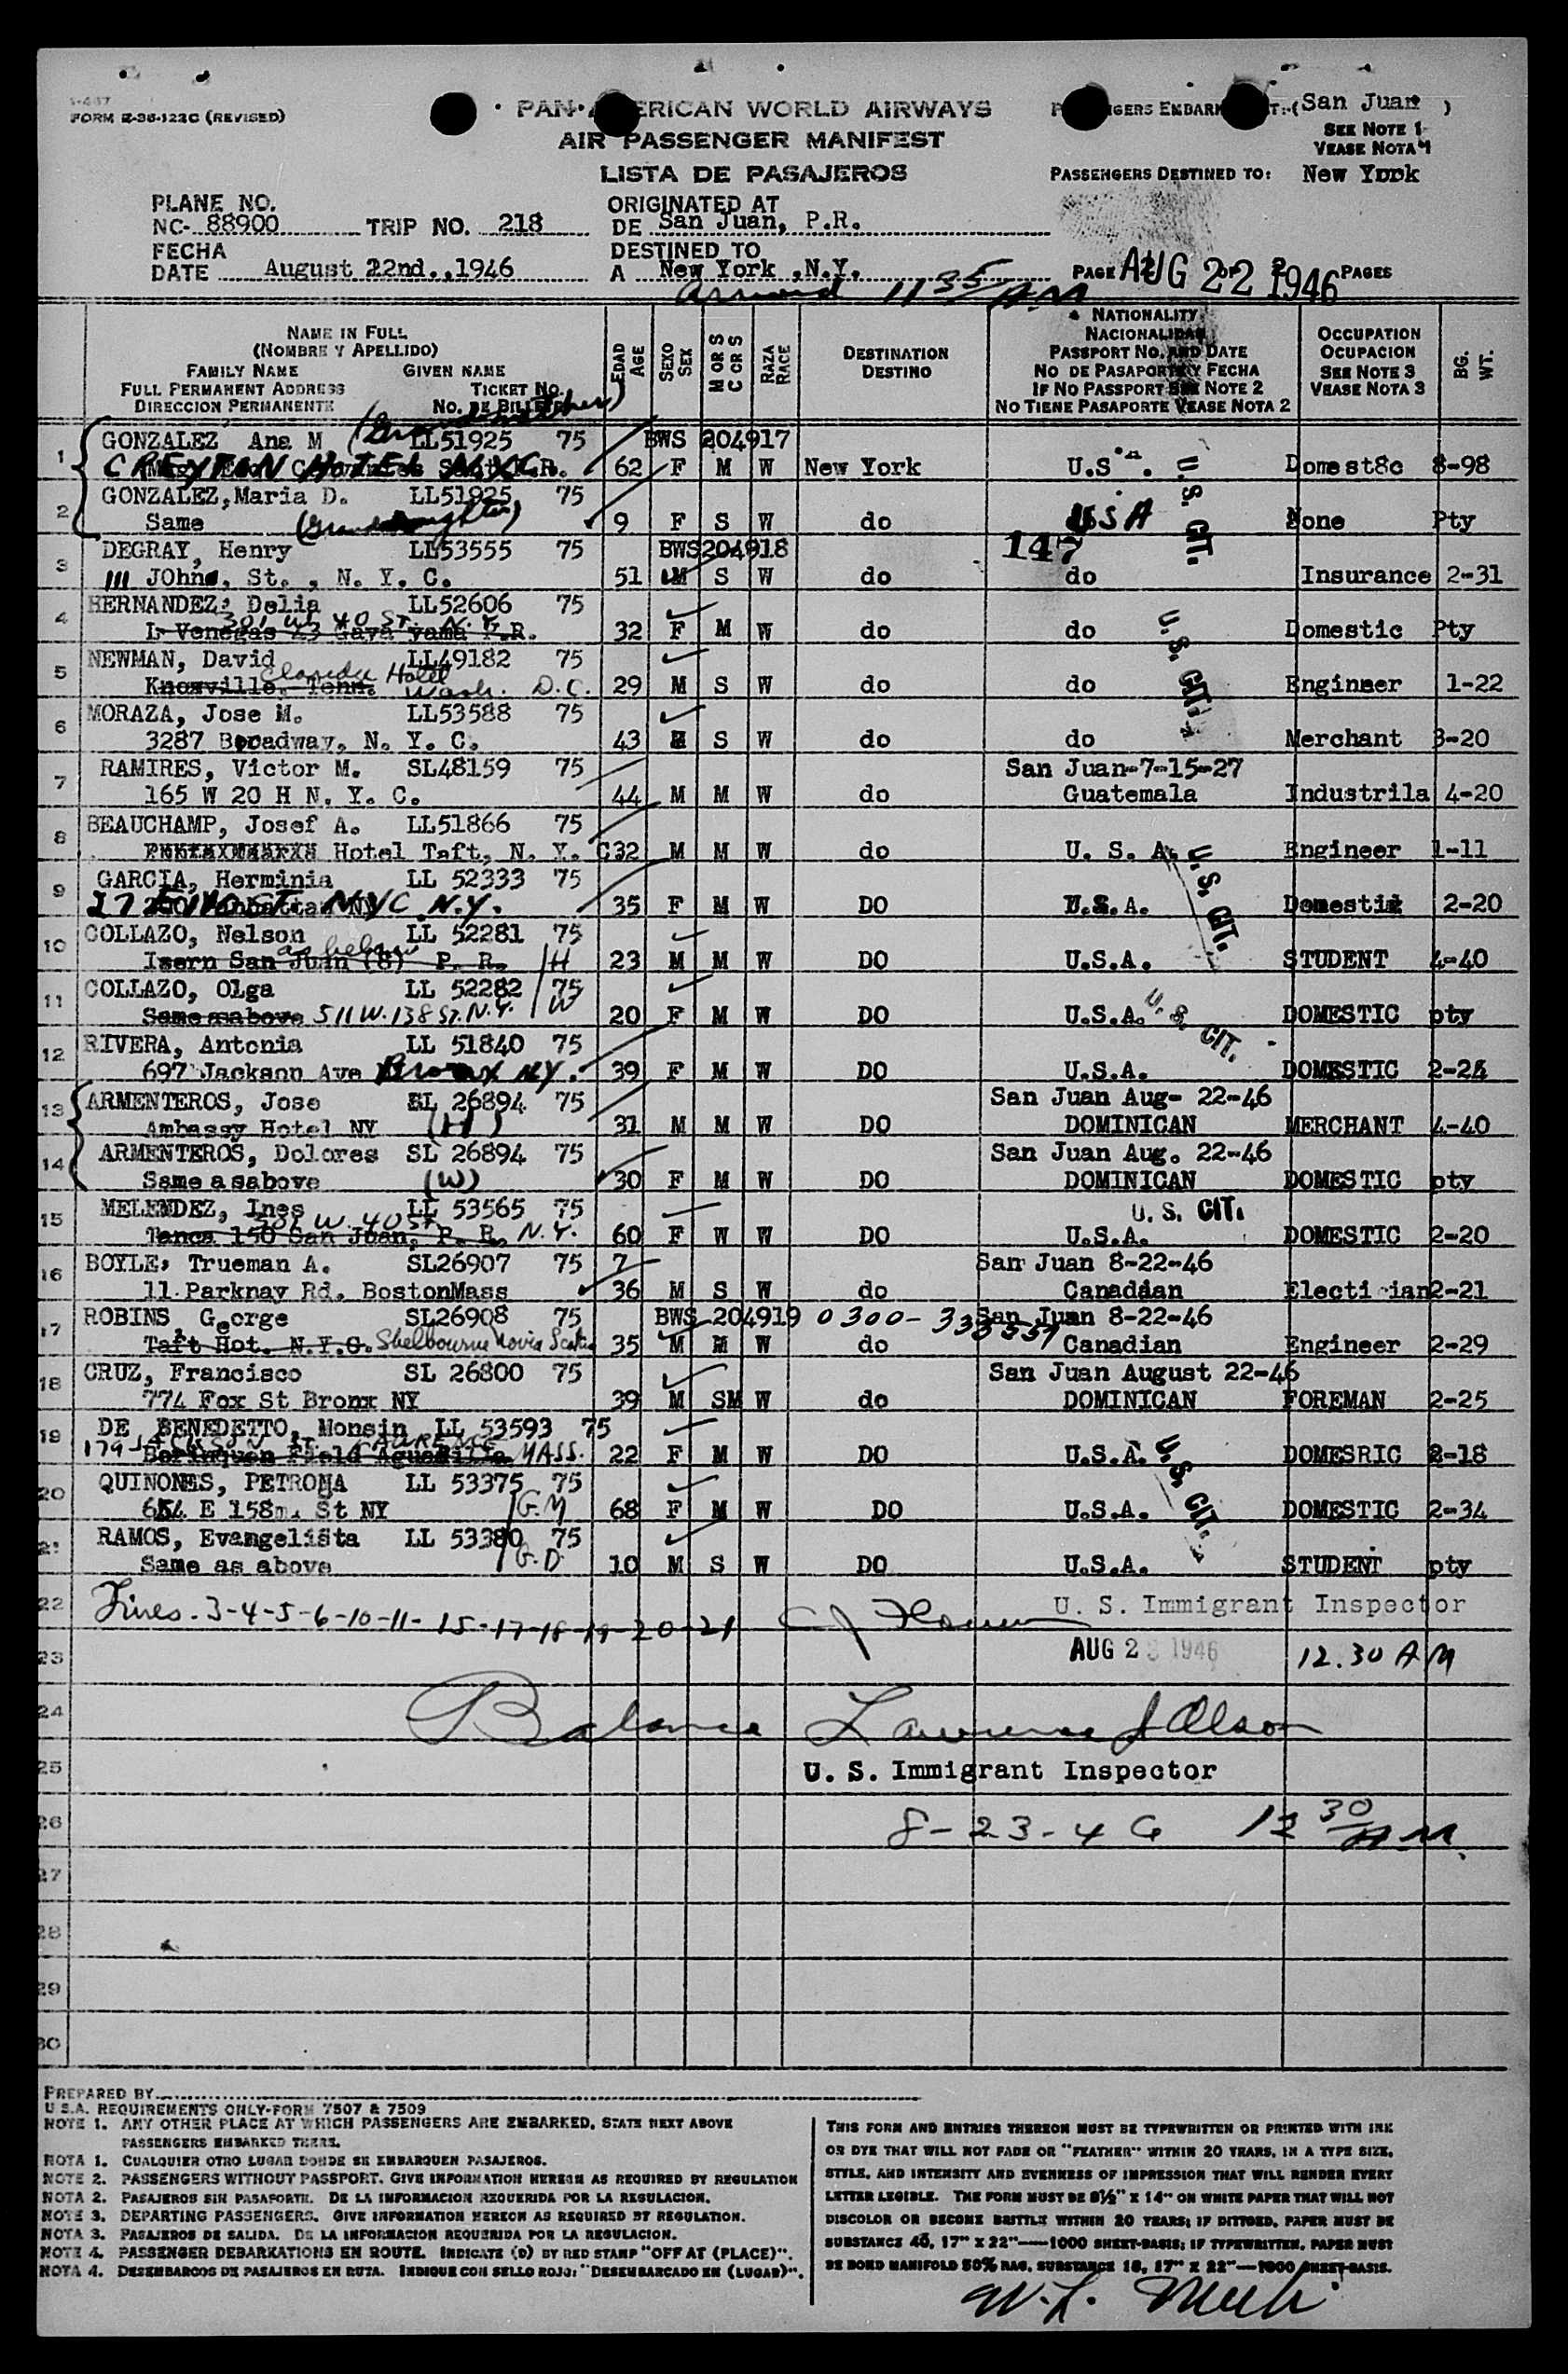 I-467
FORM E-36-122C (REVISED)
PAN AMERICAN WORLD AIRWAYS
AIR PASSENGER MANIFEST
LISTA DE PASAJEROS
PASSENGERS EMBARKED AT: (San Juan)
SEE NOTE 1
VEASE NOTA 1
PASSENGERS DESTINED TO: New York
PLANE NO.
NC- 88900 TRIP NO. 218
ORIGINATED AT
DE San Juan, P.R.
FECHA
DATE August 22nd.,1946
DESTINED TO
A New York ,N.Y.
PAGE OF 2 PAGES
AUG 22 1946
arrived 11 35/AM
NAME IN FULL
(NOMBRE Y APELLIDO)
FAMILY NAME GIVEN NAME
FULL PERMANENT ADDRESS TICKET NO.
DIRECCION PERMANENTE NO. DE BILLETE
EDAD AGE
SEXO SEX
M OR S C OR S
RAZA RACE
DESTINATION DESTINO
NATIONALITY
NACIONALIDAD
PASSPORT NO. AND DATE
NO DE PASAPORTE Y FECHA
IF NO PASSPORT SEE NOTE 2
NO TIENE PASAPORTE VEASE NOTA 2
OCCUPATION OCUPACION SEE NOTE 3 VEASE NOTA 3
BG. WT.
(Grandmother)
1 GONZALEZ Ana M LL51925 75 BWS 204917
CREYTON HOTEL NYC. 62 F M W New York U.S. Domest8c 8-98
2 GONZALEZ,Maria D. LL51925 75
Same (Granddaughter) 9 F S W do USA None Pty
U.S. CIT.
3 DEGRAY, Henry LL53555 75 BWS204918 147
111 JOhns, St. , N. Y. C. 51 M S W do do Insurance 2-31
4 HERNANDEZ, Delia LL52606 75
301 W 40 ST. N.Y.
L Venegas 23 Guya yama P.R. 32 F M W do do Domestic Pty
5 NEWMAN, David LL49182 75
Hotel
Knoxville. Tenn. Wash. D.C. 29 M S W do do Engineer 1-22
U.S. CIT.
6 MORAZA, Jose M. LL53588 75
3287 Broadway, N. Y. C. 43 M S W do do Merchant 3-20
7 RAMIRES, Victor M. SL48159 75 San Juan-7-15-27
165 W 20 H N. Y. C. 44 M M W do Guatemala Industrila 4-20
8 BEAUCHAMP, Josef A. LL51866 75
Hotel Taft, N. Y. C 32 M M W do U. S. A. Engineer 1-11
9 GARCIA, Herminia LL 52333 75
27 E 110 ST. NYC N.Y. 35 F M W DO U.S.A. Domestic 2-20
U.S. CIT.
10 COLLAZO, Nelson LL 52281 75
as below
Isern San Juan (8) P. R. H 23 M M W DO U.S.A. STUDENT 4-40
11 COLLAZO, Olga LL 52282 75
Same asabove 511 W. 138 ST. N.Y. W 20 F M W DO U.S.A. DOMESTIC pty
U. S. CIT.
12 RIVERA, Antonia LL 51840 75
697 Jackson Ave Bronx N.Y. 39 F M W DO U.S.A. DOMESTIC 2-24
13 ARMENTEROS, Jose SL 26894 75 San Juan Aug- 22-46
Ambassy Hotel NY (H) 31 M M W DO DOMINICAN MERCHANT 4-40
14 ARMENTEROS, Dolores SL 26894 75 San Juan Aug. 22-46
Same asabove (W) 30 F M W DO DOMINICAN DOMESTIC pty
15 MELENDEZ, Ines LL 53565 75 U. S. CIT.
301 W. 40 ST.
Tanca 150 San Juan, P. R. N.Y. 60 F W W DO U.S.A. DOMESTIC 2-20
16 BOYLE, Trueman A. SL26907 75 San Juan 8-22-46
11 Parknay Rd. BostonMass 36 M S W do Canadian Electi ian 2-21
17 ROBINS, George SL26908 75 BWS 204919 0300-333557 San Juan 8-22-46
Taft Hot. N.Y.C. Shelbourne Novia Scotia 35 M M W do Canadian Engineer 2-29
18 CRUZ, Francisco SL 26800 75 San Juan August 22-46
774 Fox St Bronx NY 39 M SM W do DOMINICAN FOREMAN 2-25
19 DE BENEDETTO, Monsin LL 53593 75
179 ST.
Borinquen Field Aguadilla MASS. 22 F M W DO U.S.A. DOMESRIC 2-18
20 QUINONES, PETRONA LL 53375 75
654 E 158 St NY G.M 68 F M W DO U.S.A. DOMESTIC 2-34
U.S. CIT.
21 RAMOS, Evangelista LL 53380 75
Same as above G.D. 10 M S W DO U.S.A. STUDENT pty
22 Lines. 3-4-5-6-10-11-15-17-18-19-20-21 U. S. Immigrant Inspector
23 AUG 23 1946 12.30 AM
24 Balance Lawrence J Olson
25 U. S. Immigrant Inspector
26 8-23-46 12 30/AM.
27
28
29
30
PREPARED BY
U.S.A. REQUIREMENTS ONLY-FORM 7507 & 7509
NOTE 1. ANY OTHER PLACE AT WHICH PASSENGERS ARE EMBARKED, STATE NEXT ABOVE
PASSENGERS EMBARKED THERE.
NOTA 1. CUALQUIER OTRO LUGAR DONDE SE EMBARQUEN PASAJEROS.
NOTE 2. PASSENGERS WITHOUT PASSPORT. GIVE INFORMATION HEREON AS REQUIRED BY REGULATION
NOTA 2. PASAJEROS SIN PASAPORTE. DE LA INFORMACION REQUERIDA POR LA REGULACION.
NOTE 3. DEPARTING PASSENGERS. GIVE INFORMATION HEREON AS REQUIRED BY REGULATION.
NOTA 3. PASAJEROS DE SALIDA. DE LA INFORMACION REQUERIDA POR LA REGULACION.
NOTE 4. PASSENGER DEBARKATIONS EN ROUTE. INDICATE (D) BY RED STAMP "OFF AT (PLACE)".
NOTA 4. DESEMBARCOS DE PASAJEROS EN RUTA. INDIQUE CON SELLO ROJO: "DESEMBARCADO EN (LUGAR)".
THIS FORM AND ENTRIES THEREON MUST BE TYPEWRITTEN OR PRINTED WITH INK
OR DYE THAT WILL NOT FADE OR "FEATHER" WITHIN 20 YEARS, IN A TYPE SIZE,
STYLE, AND INTENSITY AND EVENNESS OF IMPRESSION THAT WILL RENDER EVERY
LETTER LEGIBLE. THE FORM MUST BE 8½" X 14" ON WHITE PAPER THAT WILL NOT
DISCOLOR OR BECOME BRITTLE WITHIN 20 YEARS; IF DITTOED, PAPER MUST BE
SUBSTANCE 40, 17" X 22"—1000 SHEET-BASIS; IF TYPEWRITTEN, PAPER MUST
BE BOND MANIFOLD 50% RAG, SUBSTANCE 16, 17" X 22"—1000 SHEET-BASIS.
W. L.